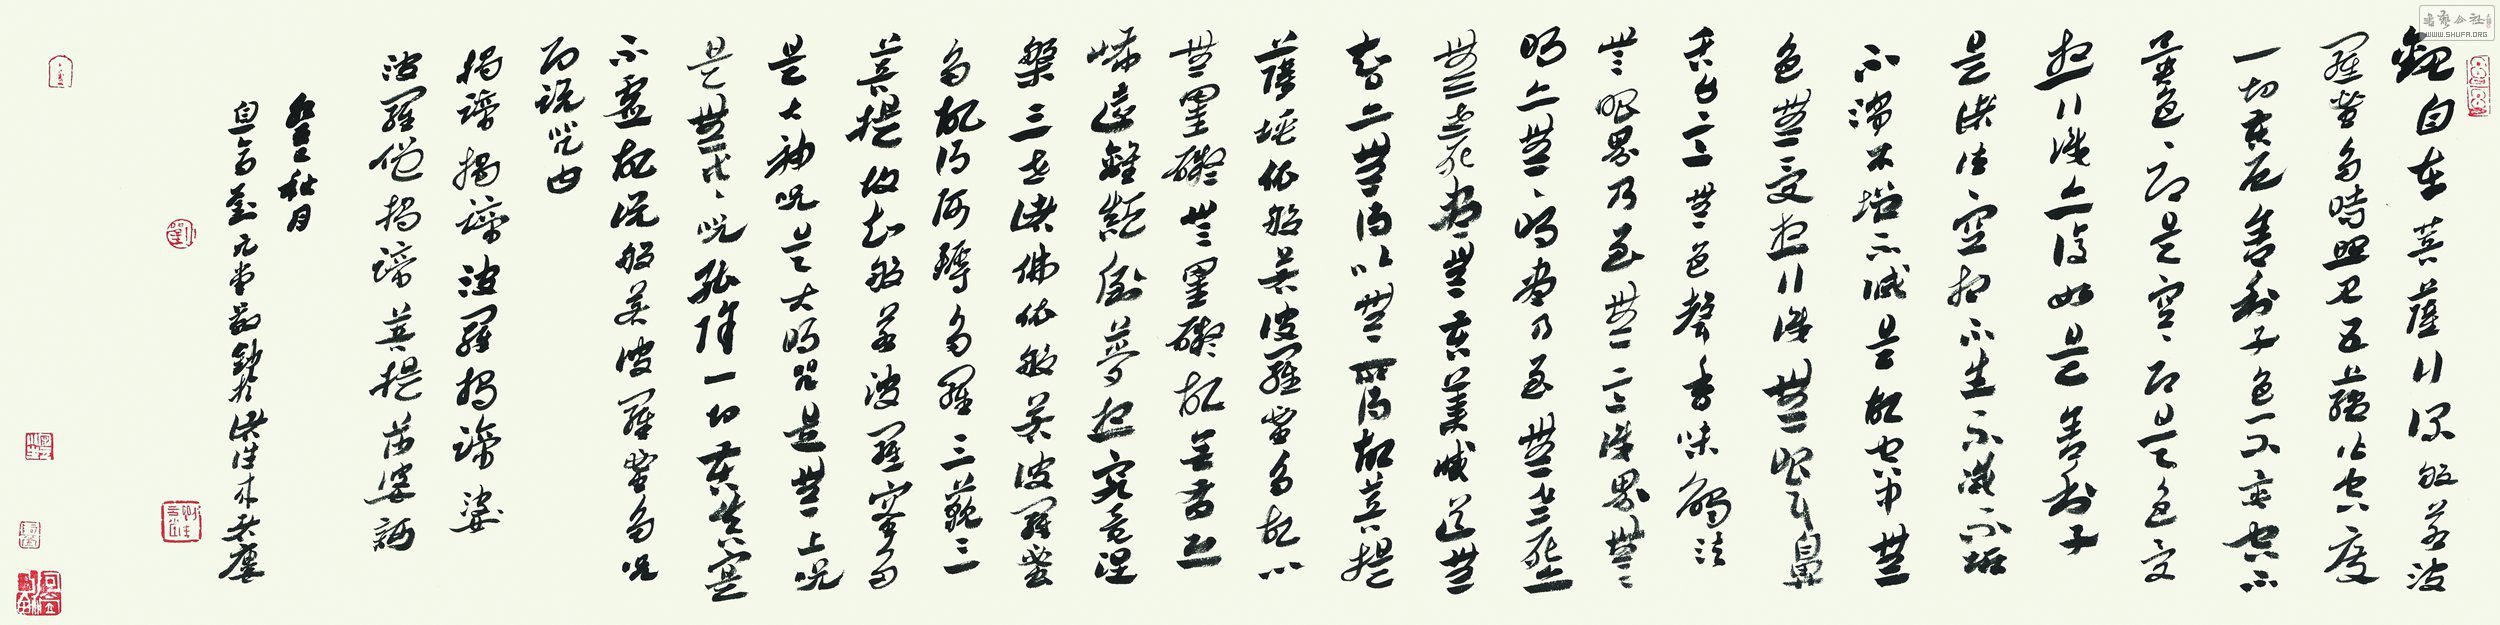 觀自在菩薩行深般若波
羅蜜多時照見五蘊皆空度
一切苦厄舍利子色不異空空不
異色色即是空空即是色受
想行識亦復如是舍利子
是諸法空相不生不滅不垢
不淨不增不減是故空中無
色無受想行識無眼耳鼻
舌身意無色聲香味觸法
無眼界乃至無意識界無無
明亦無無明盡乃至無老死亦
無老死盡無苦集滅道無
智亦無得以無所得故菩提
薩埵依般若波羅蜜多故心
無罣礙無罣礙故無有恐
怖遠離顛倒夢想究竟涅
槃三世諸佛依般若波羅蜜
多故得阿耨多羅三藐三
菩提故知般若波羅蜜多
是大神咒是大明咒是無上咒
是無等等咒能除一切苦真實
不虛故說般若波羅蜜多咒
即說咒曰
揭諦揭諦波羅揭諦 婆
波羅僧揭諦菩提薩婆訶
秋月
書藝公社
WWW.SHUFA.ORG